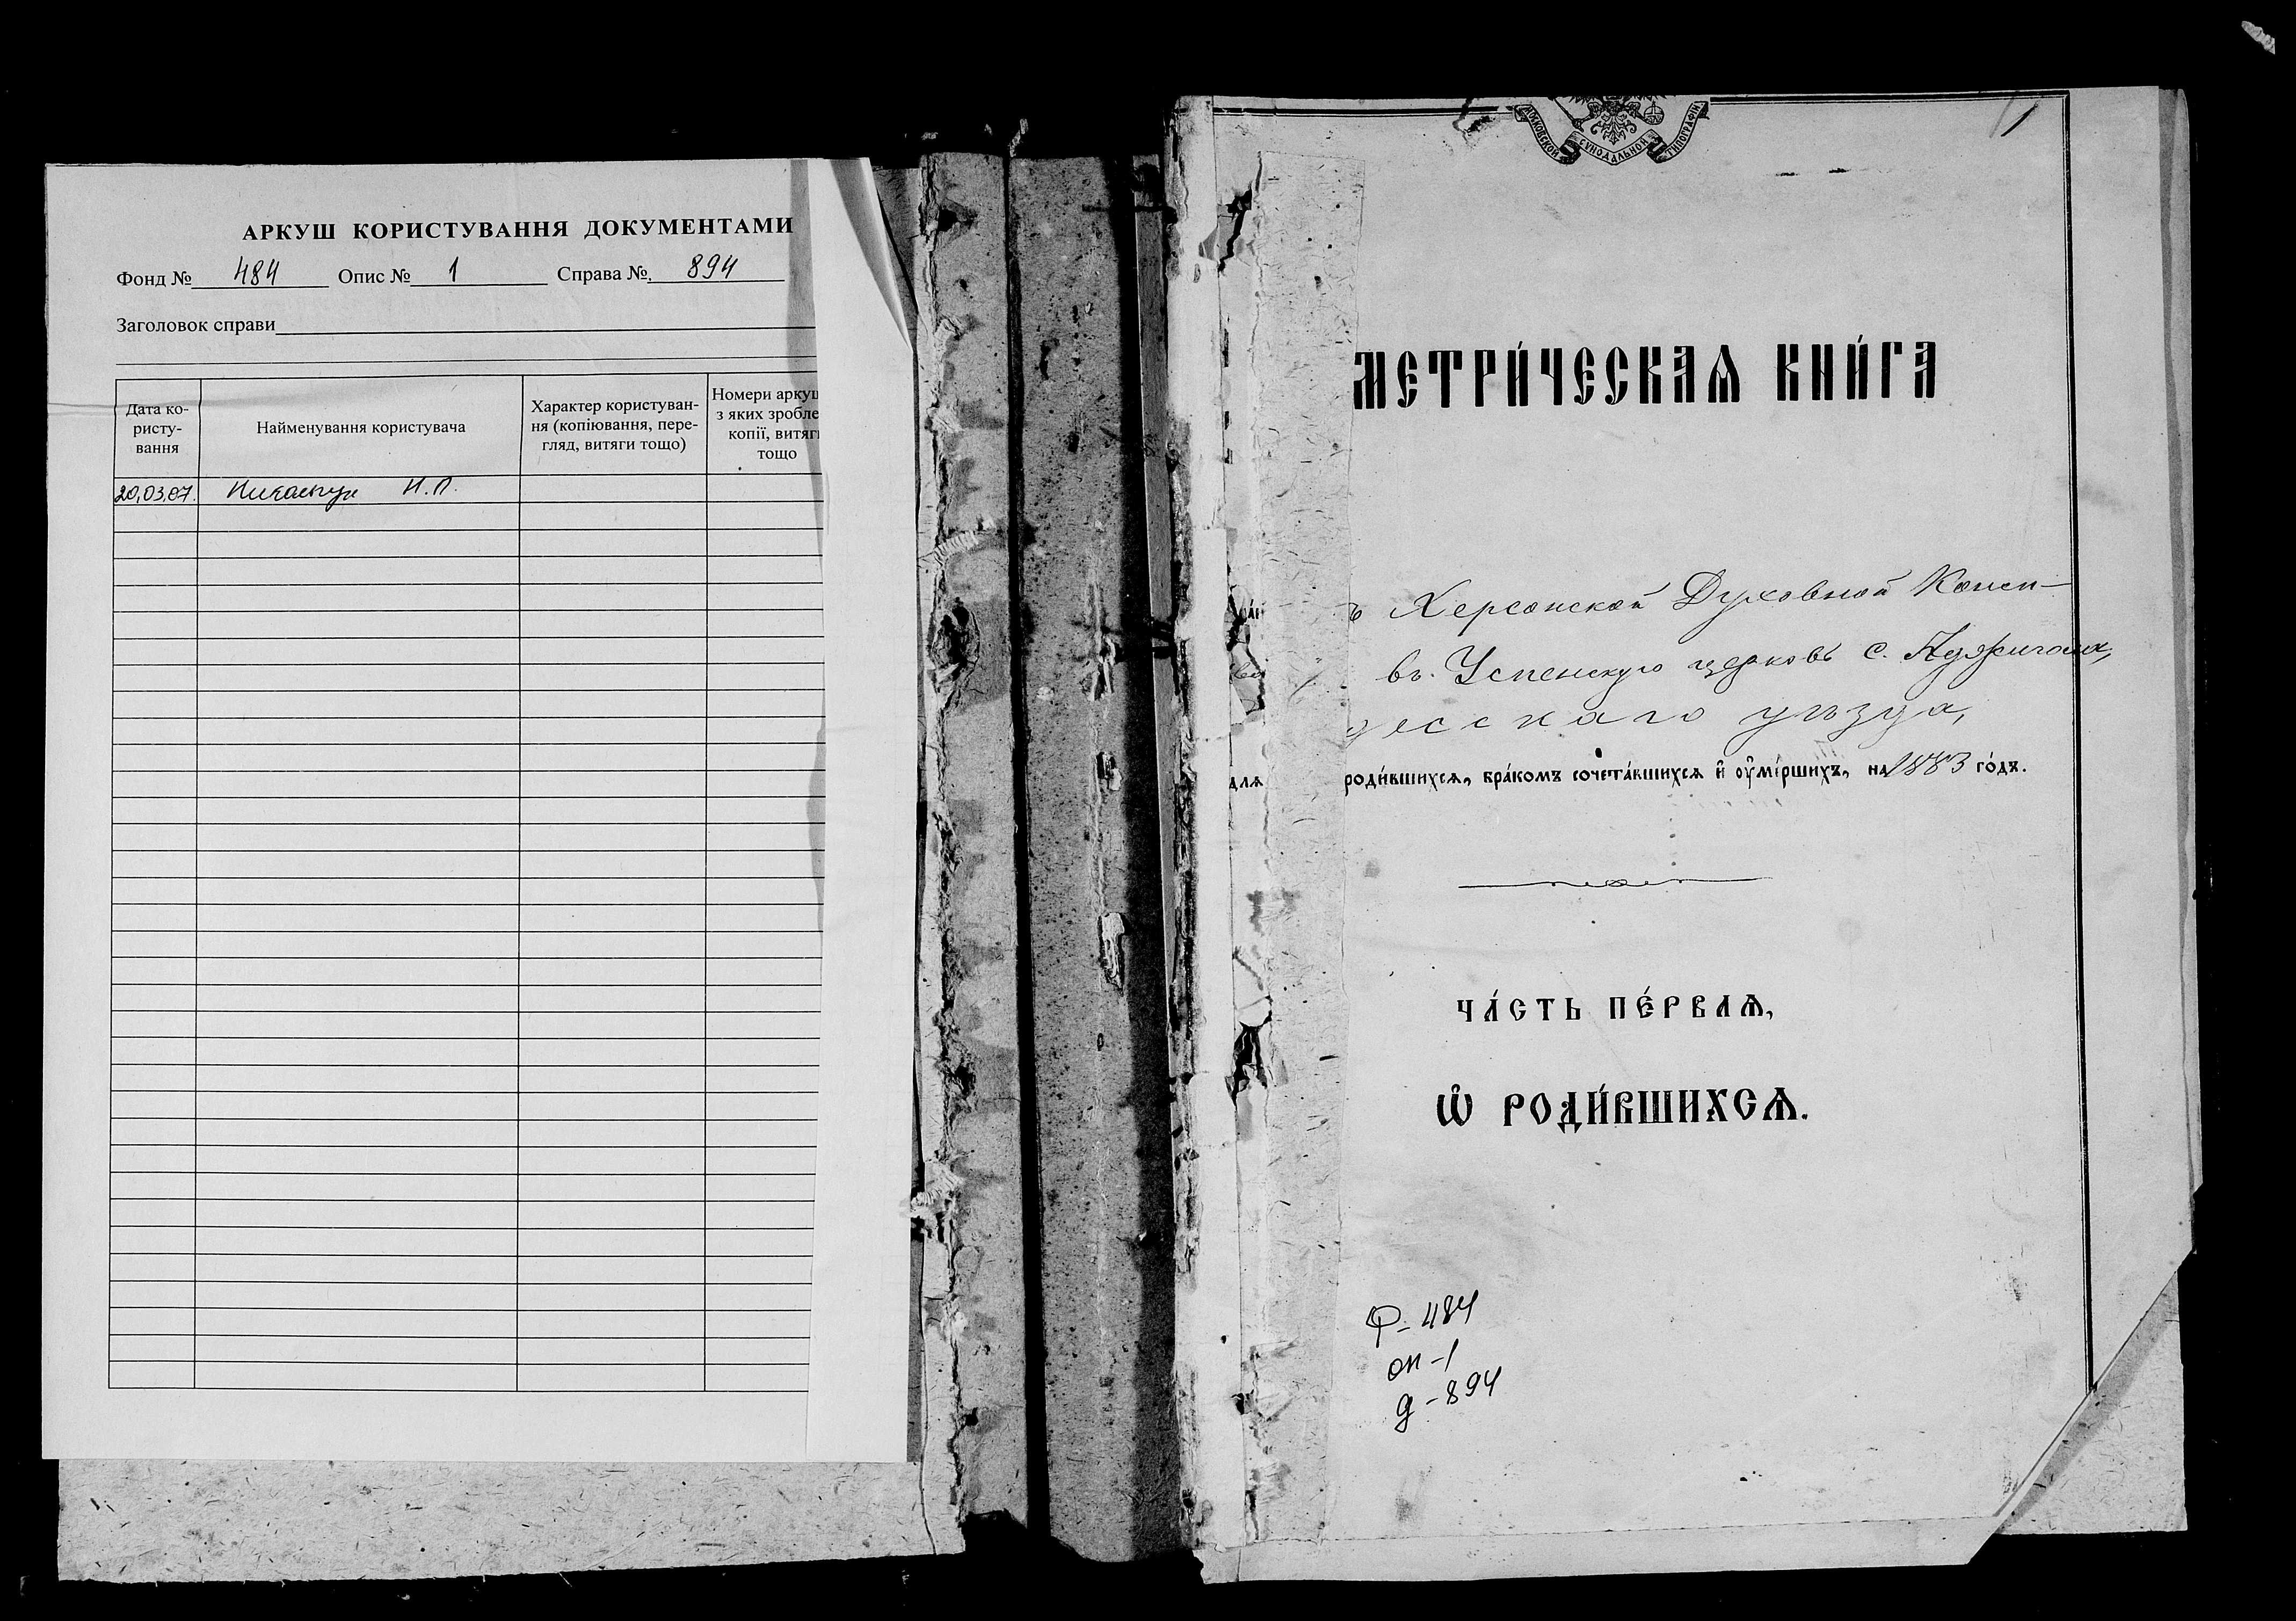 АРКУШ КОРИСТУВАННЯ ДОКУМЕНТАМИ
Фонд № 484 Опис № 1 Справа № 894
Заголовок справи
Дата ко-
ристу-
вання
Найменування користувача
Характер користуван-
ня (копіювання, пере-
гляд, витяги тощо)
Номери аркуш
з яких зробле
копії, витяги
тощо
20,03,07. Н.П.
1
МОСКОВСКОЙ СУНОДАЛЬНОЙ ТИПОГРАФІИ
МЕТРИ́ЧЕСКАѦ КНИ́ГА
ъ Херсонской Духовной Конси-
въ Успенскую церковь с.
десскаго уѣзда,
для роди́вшихсѧ, бра́комъ сочета́вшихсѧ и҆ ᲂу҆ме́ршихъ, на 1883 го́дъ.
ЧА́СТЬ ПЕ́РВАѦ,
Ѡ҆ РОДИ́ВШИХСѦ.
Ф-484
оп-1
д-894